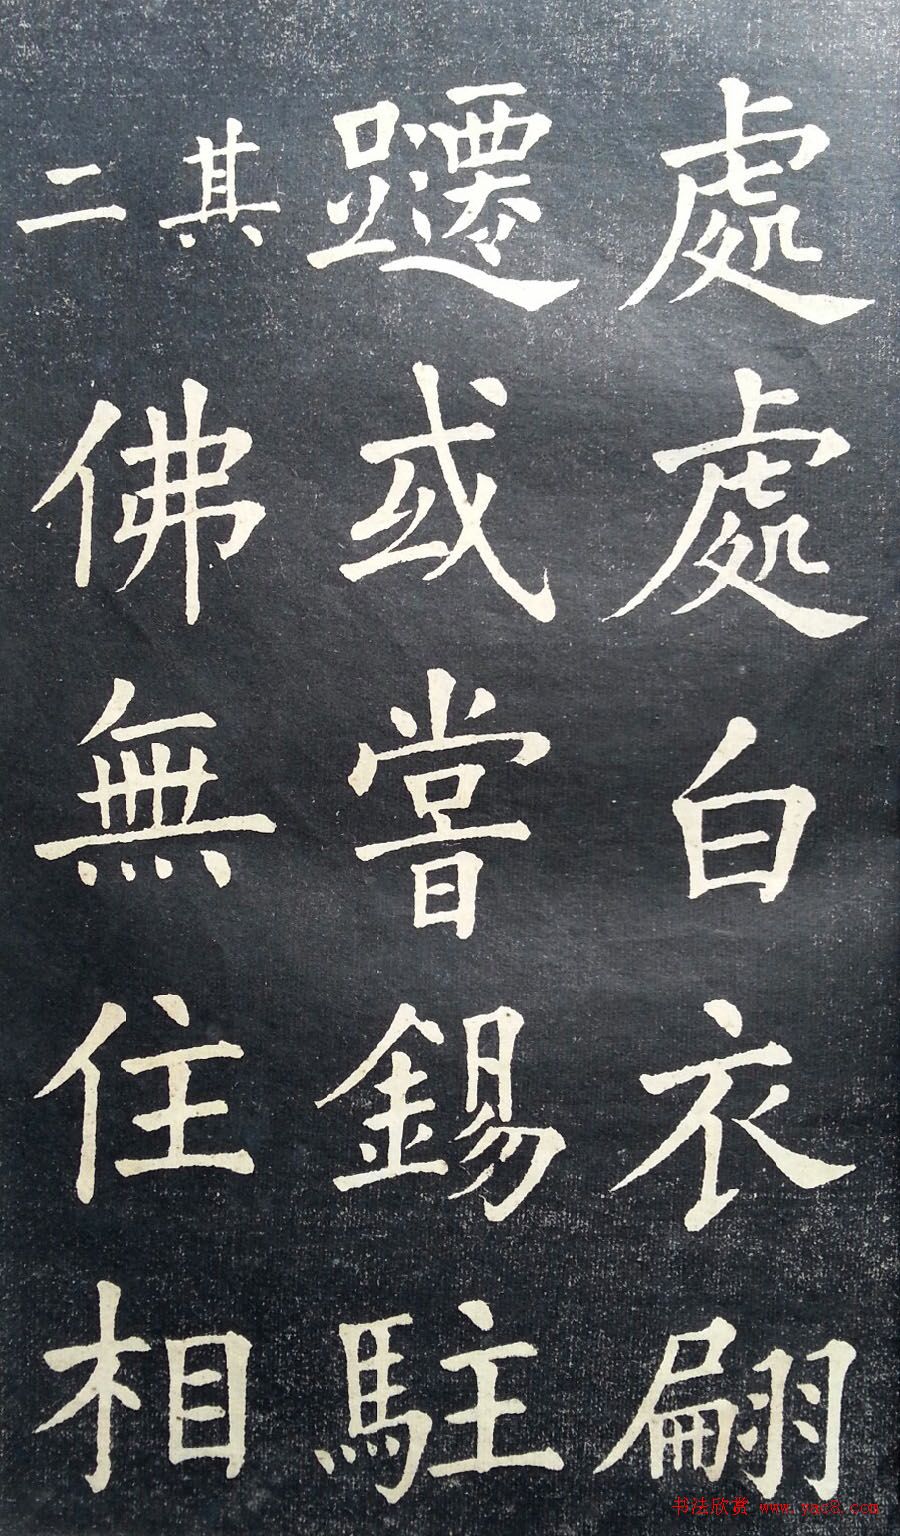 處處白衣翩
躚或嘗錫駐
其二
佛無住相
书法欣赏 www.yac8.com